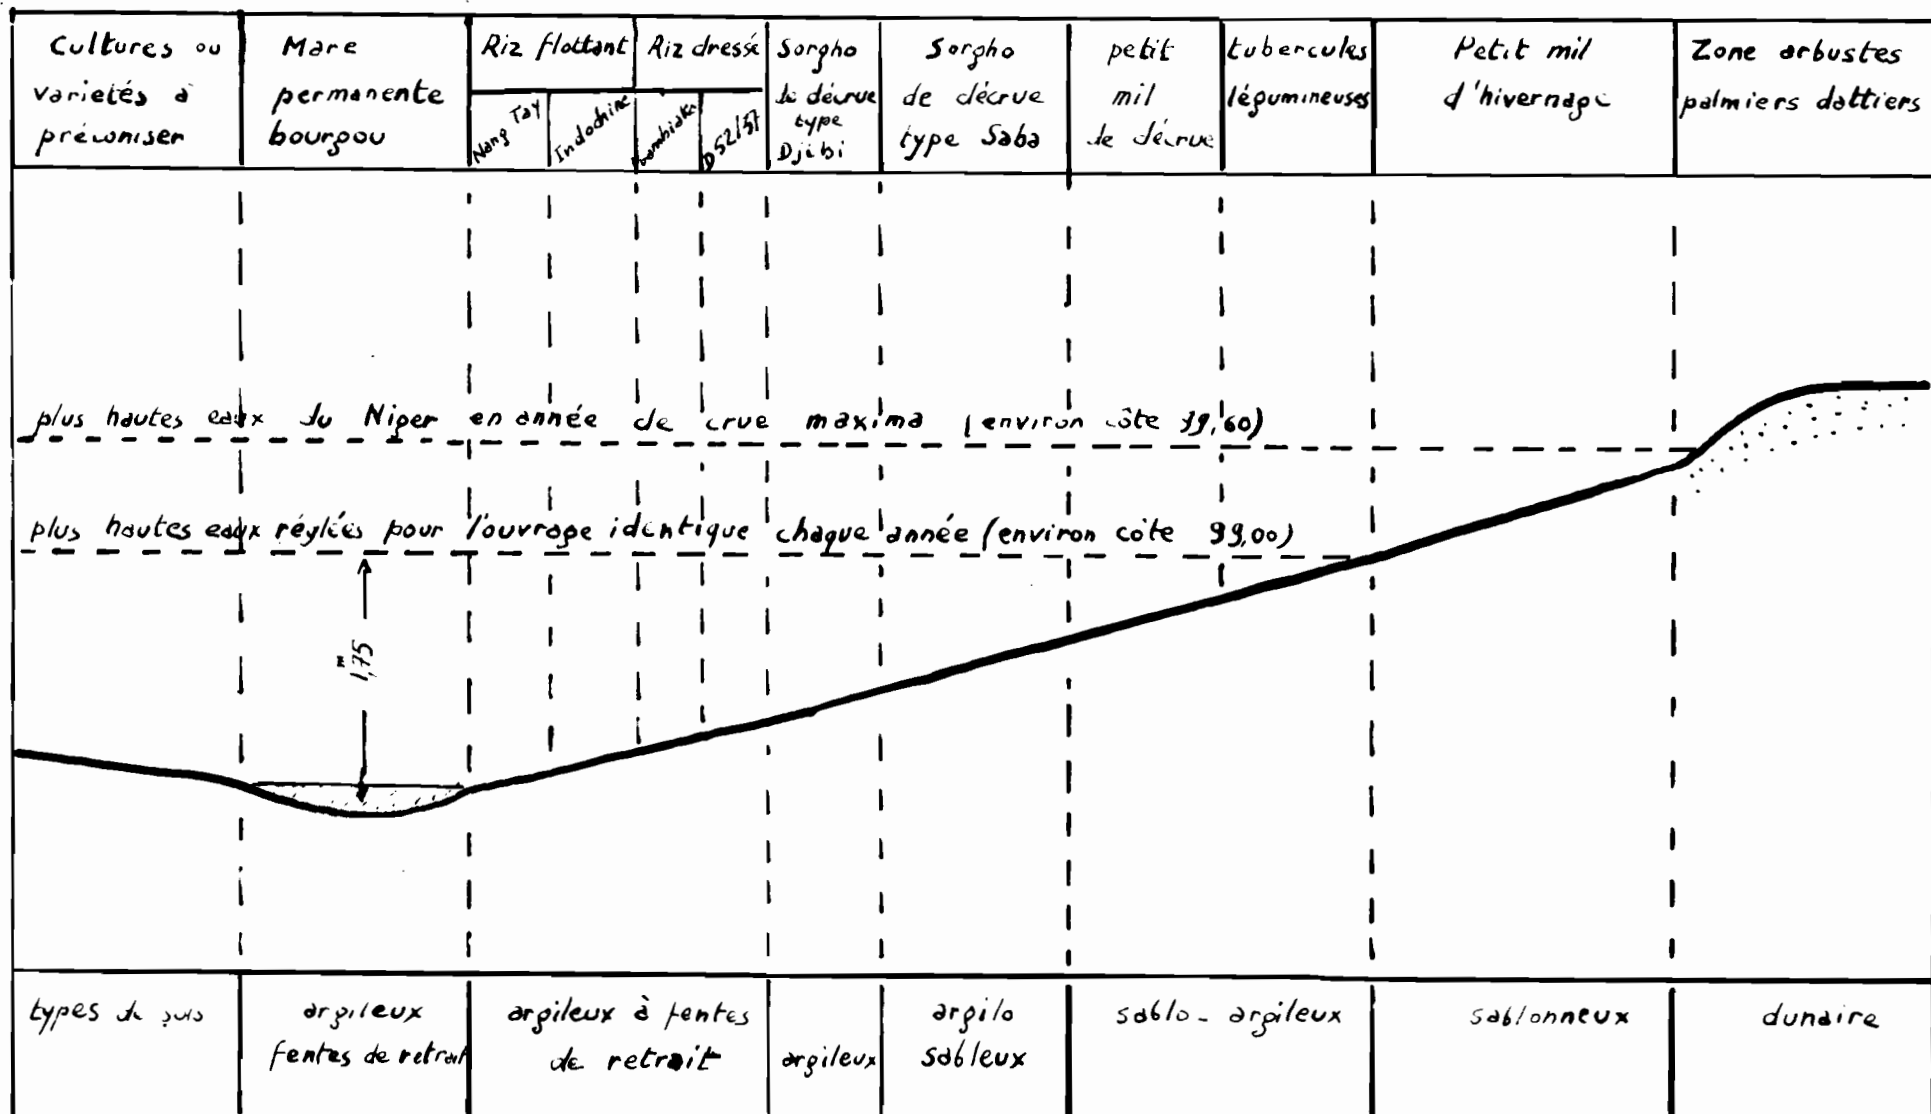 Cultures ou
varietés à
préconiser
Mare
permanente
bourgou
Riz flottant
Nang Tay
Indochine
Riz dressé
D52/37
Sorgho
de décrue
type
Djibi
Sorgho
de décrue
type Saba
petit
mil
de décrue
tubercules
légumineuses
Petit mil
d'hivernage
Zone arbustes
palmiers dattiers
plus hautes eaux du Niger en année de crue maxima (environ côte 99,60)
plus hautes eaux réglées pour l'ouvrage identique chaque année (environ côte 99,00)
1,75 m
types de sols
argileux
fentes de retrait
argileux à fentes
de retrait
argileux
argilo
sableux
sablo-argileux
sablonneux
dunaire